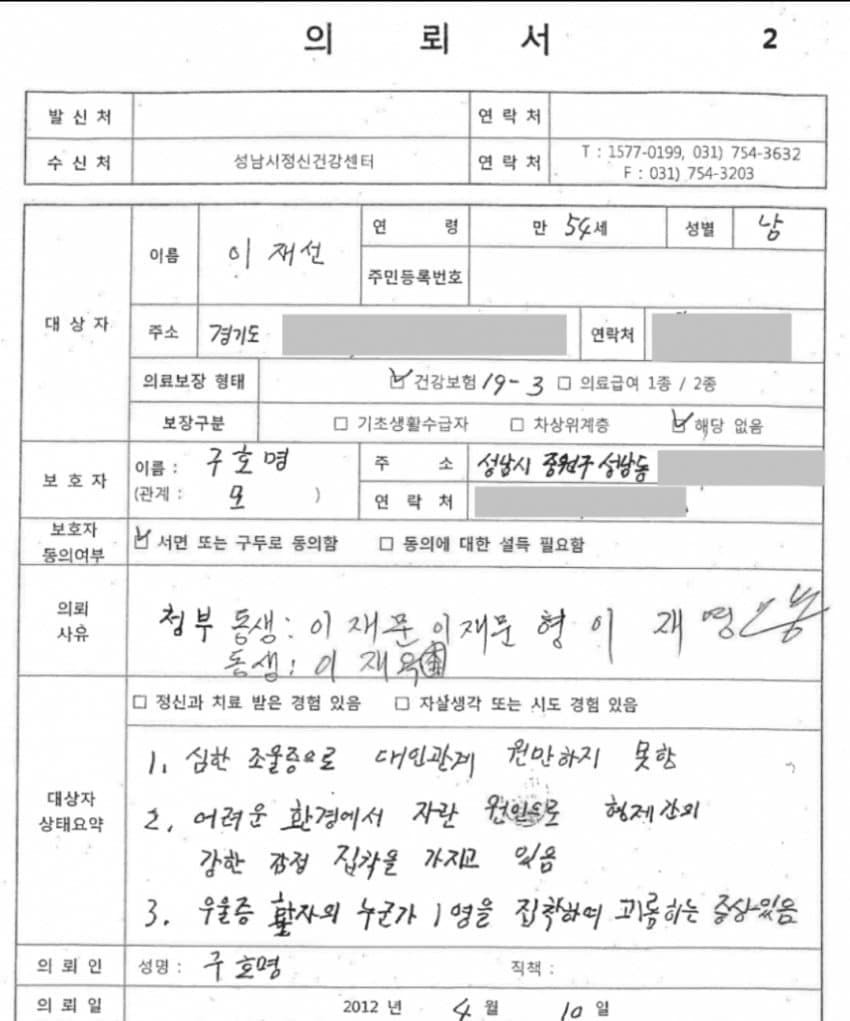 의 뢰 서 2
발 신 처 연 락 처
수 신 처 성남시정신건강센터 연 락 처 T : 1577-0199, 031) 754-3632
F : 031) 754-3203
대 상 자 이름 이 재선 연 령 만 54세 성별 남
주민등록번호
주소 경기도 연락처
의료보장 형태 건강보험 19-3 의료급여 1종 / 2종
보장구분 기초생활수급자 차상위계층 해당 없음
보 호 자 이름 : 구호명 주 소 성남시 중원구 성남동
(관계 : 모 ) 연 락 처
보호자
동의여부 서면 또는 구두로 동의함 동의에 대한 설득 필요함
의뢰
사유 첨부 동생: 이 재문 이재문 형 이 재영
동생: 이 재옥
대상자
상태요약 정신과 치료 받은 경험 있음 자살생각 또는 시도 경험 있음
1. 심한 조울증으로 대인관계 원만하지 못함
2. 어려운 환경에서 자란 원인으로 형제간의
강한 감정 집착을 가지고 있음
3. 우울증 환자의 누군가 1명을 집착하여 괴롭하는 증상있음
의 뢰 인 성명 : 구호명 직책 :
의 뢰 일 2012 년 4 월 10 일